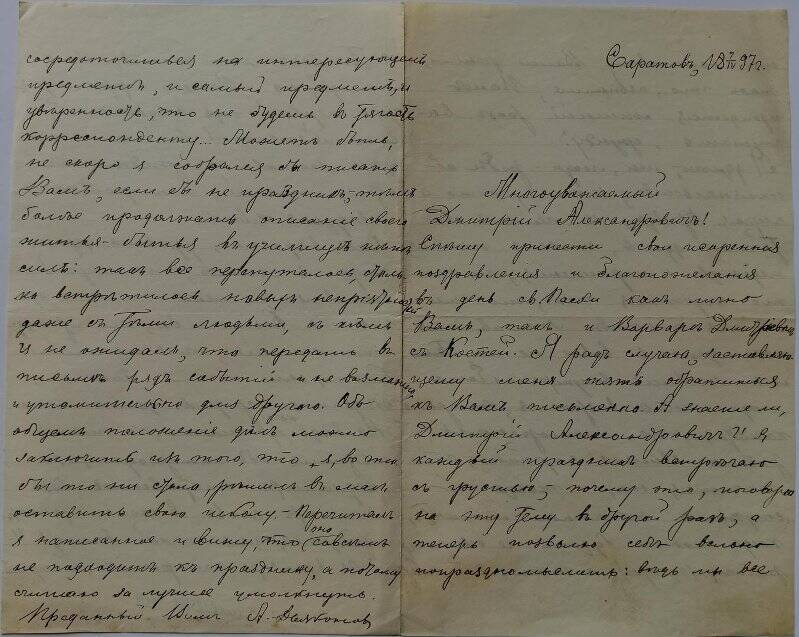 Саратовъ, 18 7/IV 97 г.
Многоуважаемый
Дмитрій Александровичъ!
Спѣшу принести свои искреннія
поздравленія и благопожеланія
въ день св. Пасхи какъ лично
Вамъ, такъ и Варварѣ Дмитріевнѣ
съ Костей. Я радъ случаю, заставляю-
щему меня опять обратиться
къ Вамъ письменно. А знаете ли,
Дмитрій Александровичъ?! Я
каждый праздникъ встрѣчаю
съ грустью, – почему это, поговорю
на эту тему въ другой разъ, а
теперь позволю себѣ вольно
попраздномыслить: вѣдь мы все
сосредоточившся на интересующемъ
предметѣ, и самый предметъ, и
увѣренность, что не будешь въ тягость
корреспонденту... Можетъ быть,
не скоро я собрался бы писать
Вамъ, если бъ не праздникъ,
болѣе продолжать описаніе своего
житья-бытья въ училищѣ нѣтъ
силъ: такъ все перепуталось, столь-
ко встрѣтилось новыхъ непріятностей
даже съ тѣми людьми, съ кѣмъ
и не ожидалъ, что передать въ
письмѣ рядъ событій и не возможно
и утомительно для другого. Объ
общемъ положеніи дѣлъ можно
заключить изъ того, что я, во что
бы то ни стало, рѣшилъ въ маѣ
оставить свою школу. – Перечиталъ
я написанное и вижу, что это совсѣмъ
не подходитъ къ празднику, а потому
считаю за лучшее умолкнуть.
Преданный Вамъ А. Дьяконовъ